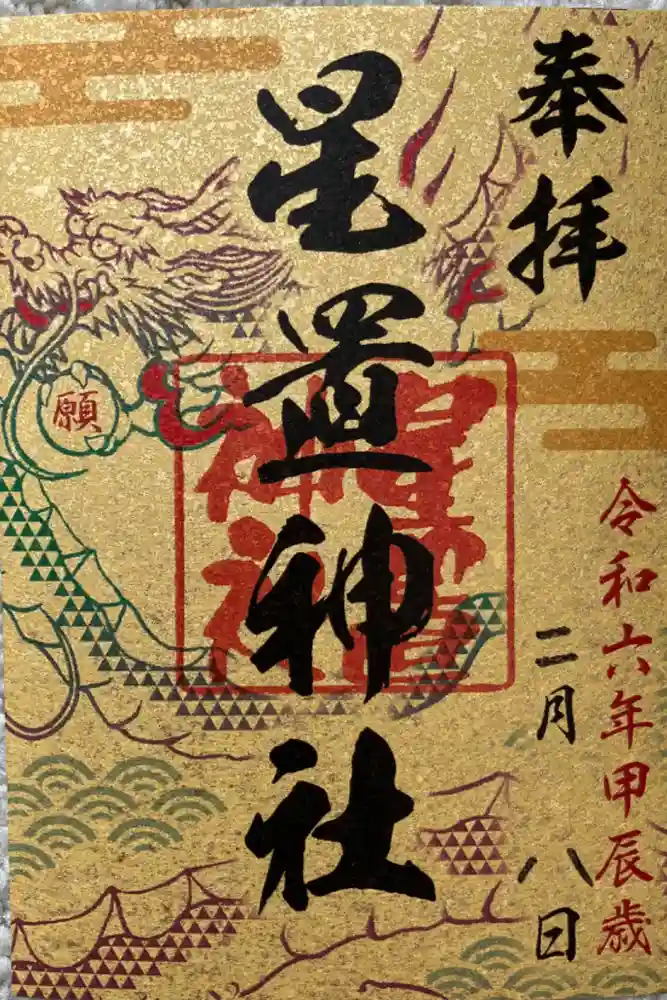 奉拝
令和六年甲辰歳
二月 八日
星置神社
星置神社
願